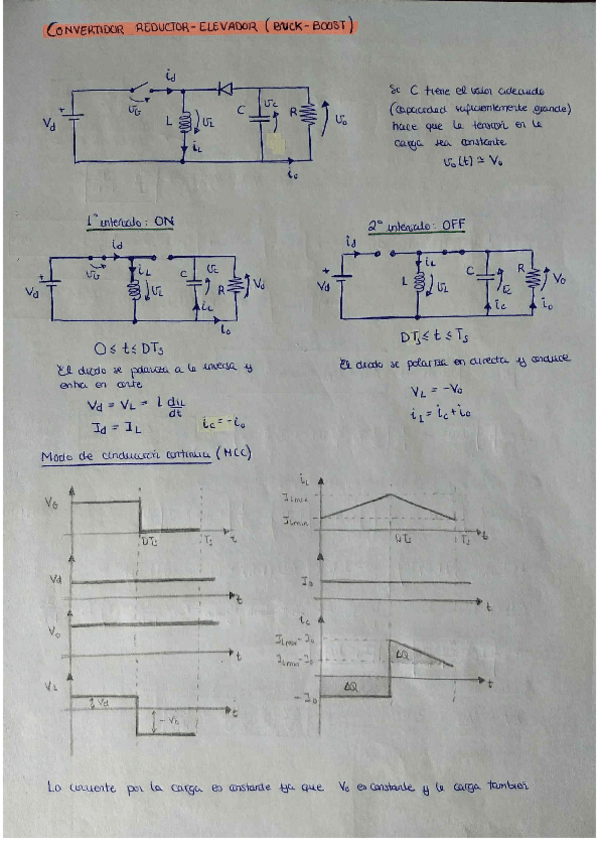 CONVERTIDOR REDUCTOR-ELEVADOR (BUCK-BOOST)
Si C tiene el valor adecuado
(capacidad suficientemente grande)
hace que la tensión en la
carga sea constante
v₀(t) ≃ V₀
id
Vd
+
vG
L
vL
iL
C
vc
R
v₀
i₀
1º intervalo: ON
id
Vd
+
vG
iL
vL
C
vc
ic
R
Vd
i₀
0 ≤ t ≤ DTs
El diodo se polariza a la inversa y
entra en corte
Vd = VL = L diL/dt
Id = IL
ic = -i₀
2º intervalo: OFF
id
Vd
+
L
iL
vL
C
vc
ic
R
V₀
i₀
DTs ≤ t ≤ Ts
El diodo se polariza en directa y conduce
VL = -V₀
iL = ic + i₀
Modo de conducción continua (MCC)
VG
DTs
Ts
t
Vd
t
V₀
t
VL
Vd
-V₀
t
iL
ILmax
ILmin
DTs
Ts
t
I₀
t
ic
ILmax-I₀
ILmin-I₀
ΔQ
ΔQ
-I₀
t
La corriente por la carga es constante ya que V₀ es constante y la carga también